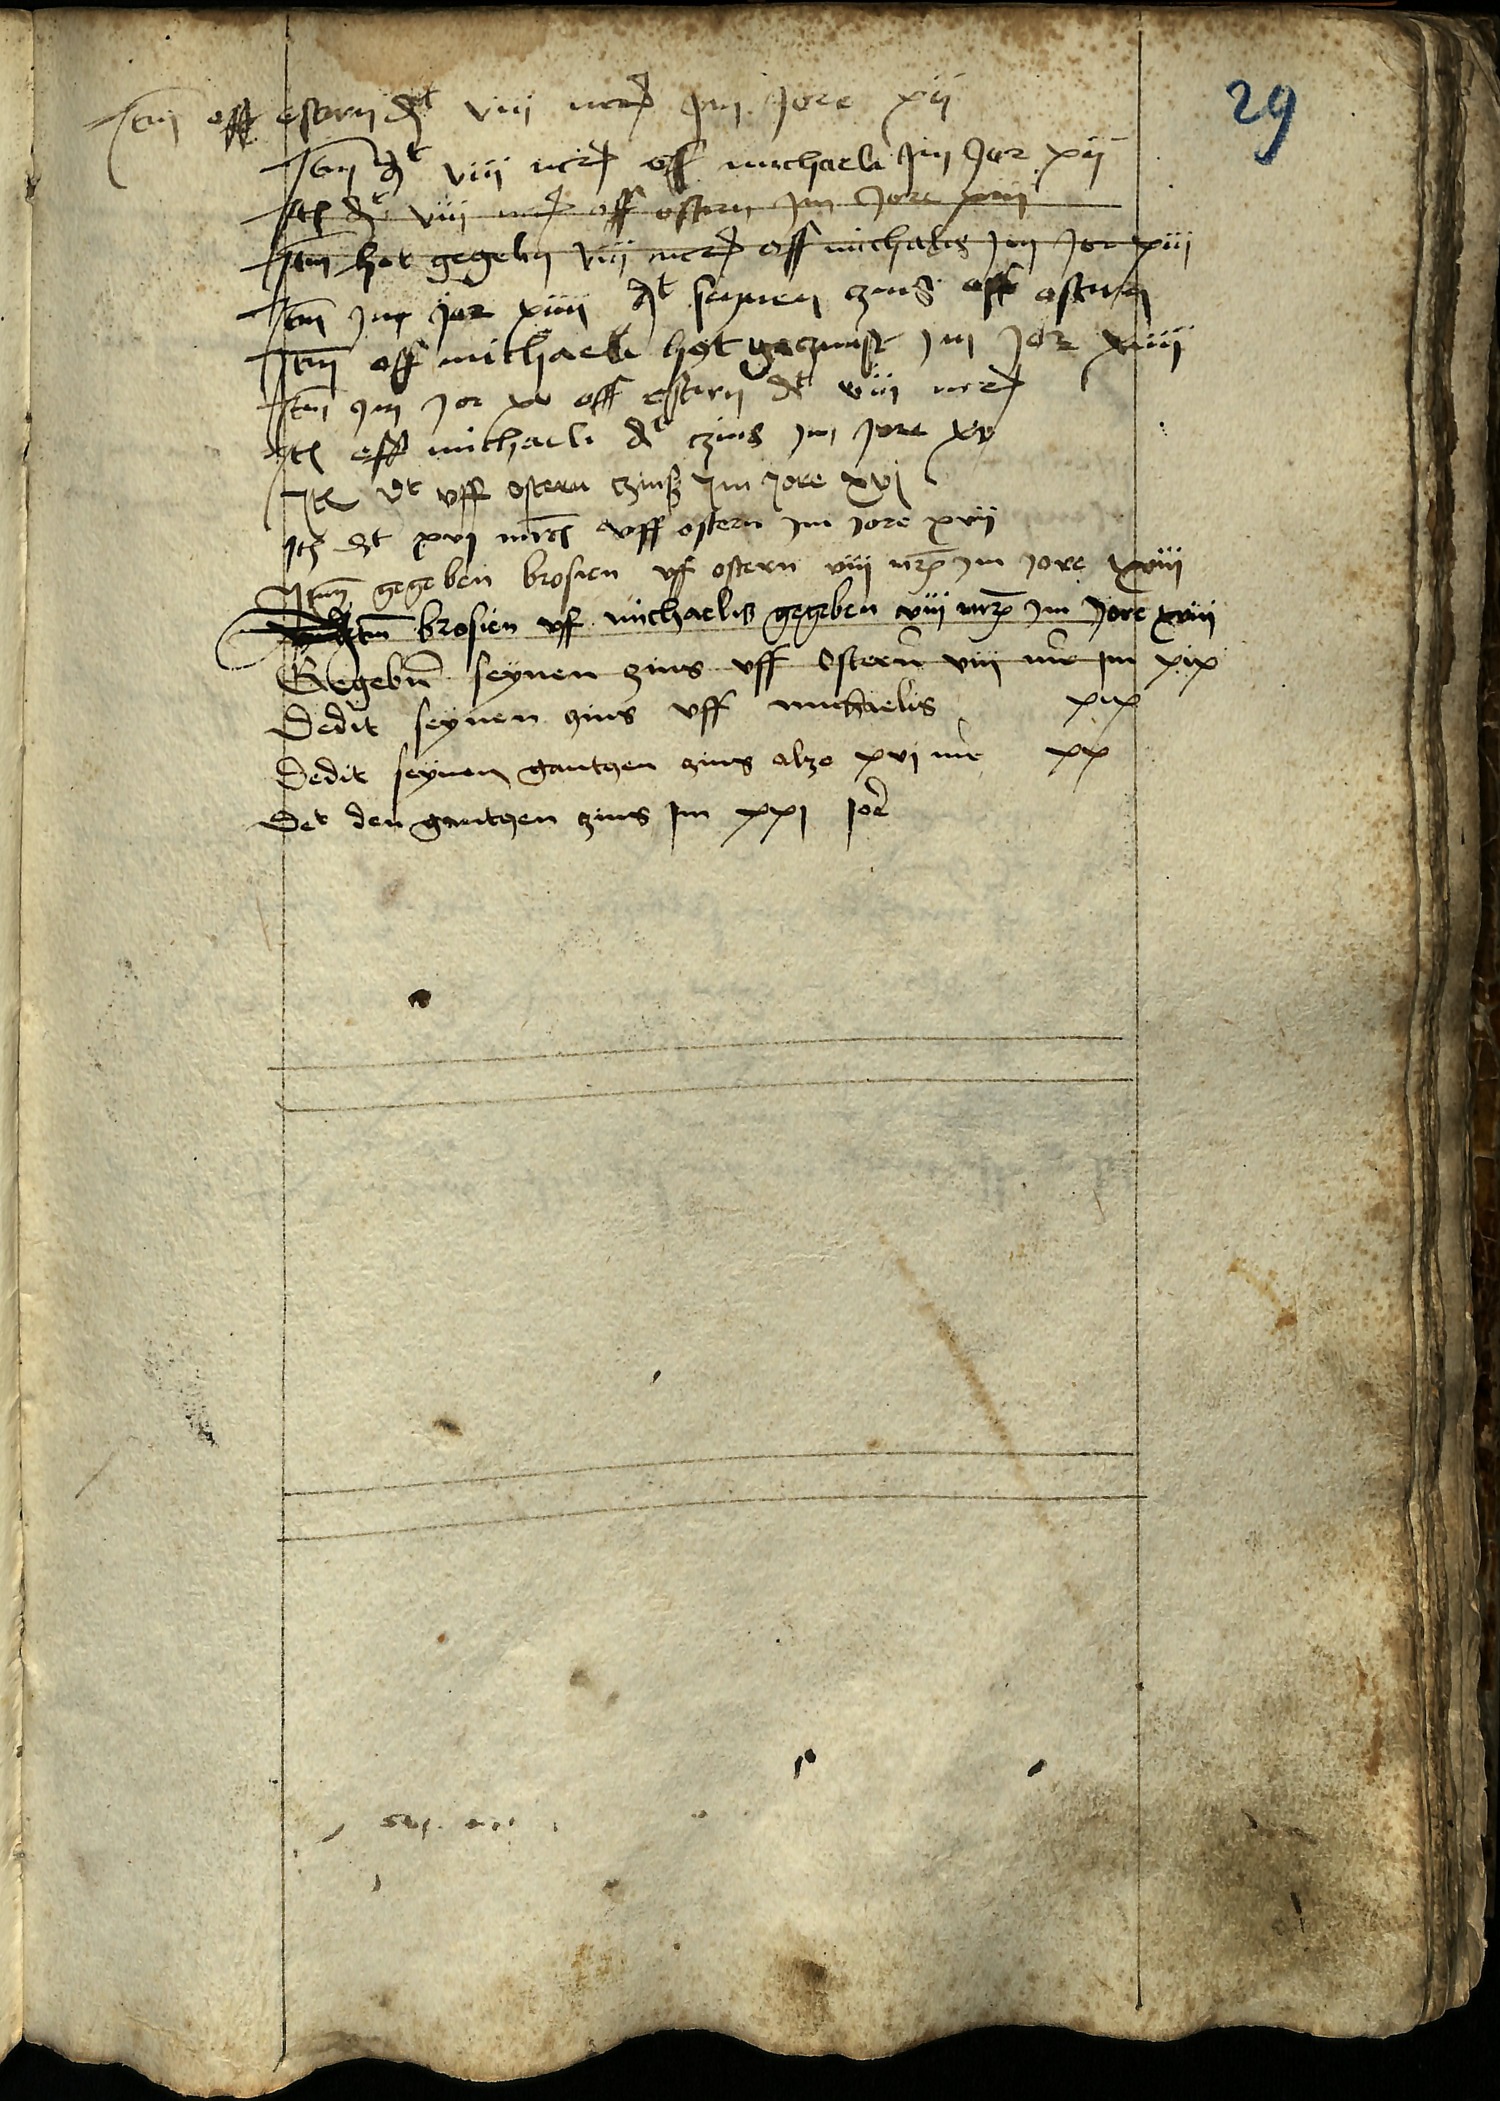 29
Item off ostern dt viii mrc Im Jore xii
Item dt viii mrc off michaeli Im Jor xii
Itm dt viii mrc off ostern Im Jore xiii
Item hot gegebn viii mrc off michalis Im Jor xiii
Item Im jar xiiii dt seynen czins off ostern
Item off michaeli hot geczinst Im Jor xiiii
Item Im Jor xv off ostern dt viii mrc
Itm off michaeli dt czins Im Jore xv
Itm dt vff ostern czinß Im Jore xvi
Itm dt xvi mrc vff ostern Im Jore xvii
Item gegeben brosien vf ostern viii mrc Im Jore xviii
Itm brosien vf michaelis gegeben viii mrc Im Jore xviii
Gegebn seynen zins vff Ostern viii mr Im xix
Dedit seynen zins vff michaelis xix
Dedit seynen gantzen zins alzo xvi mr xx
Det den gantzen zins Im xxi Jor